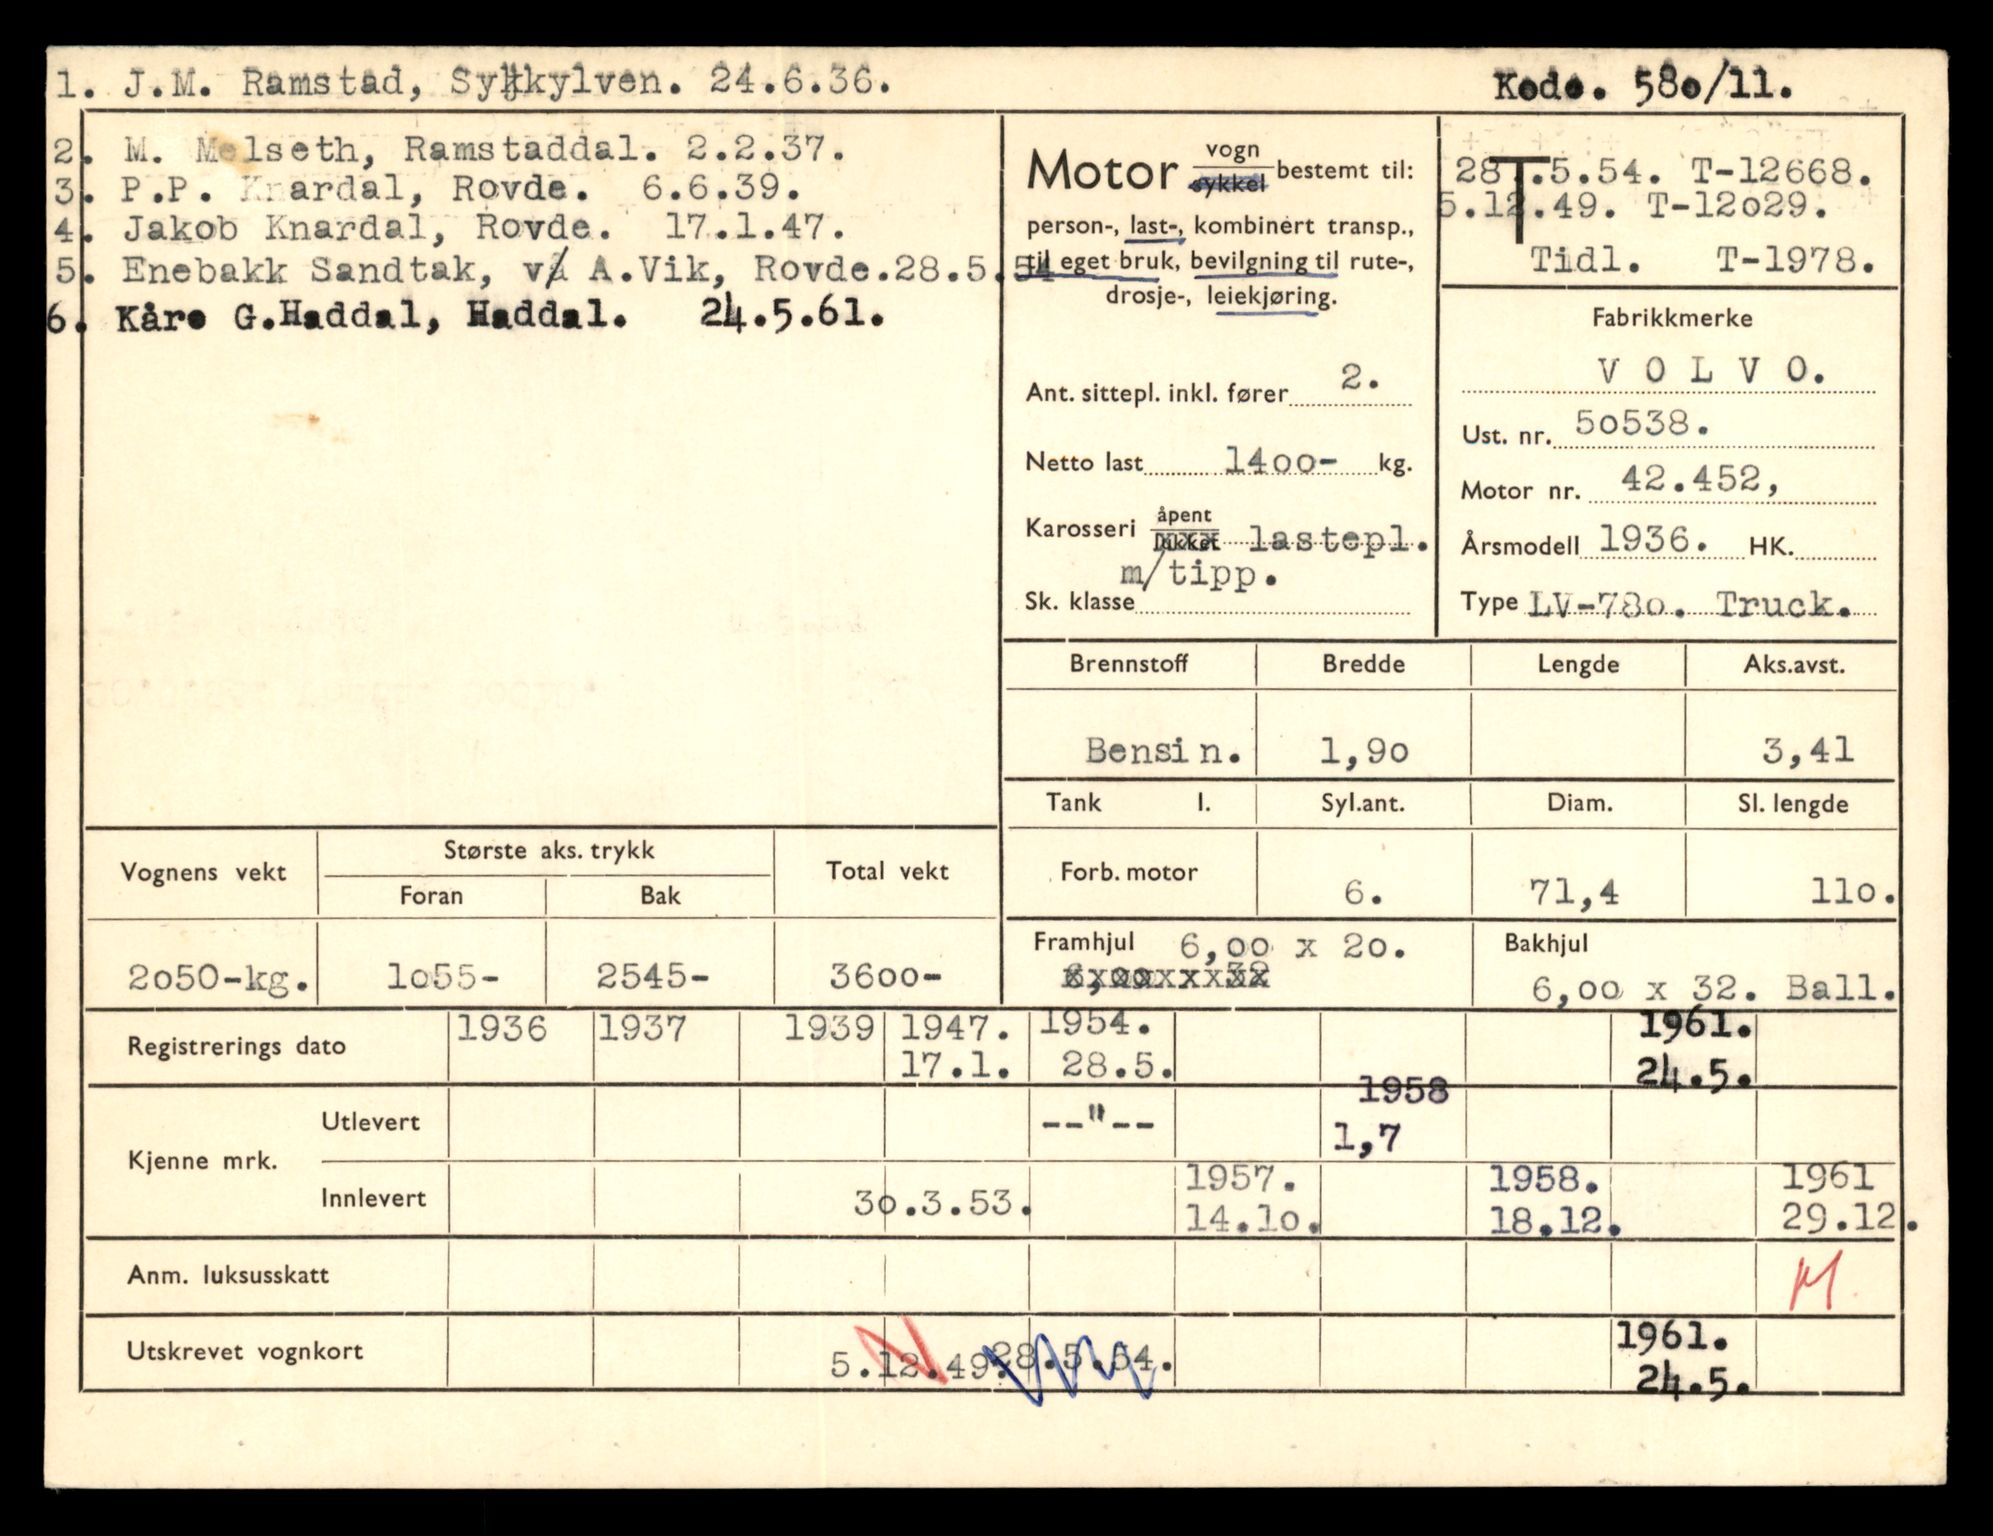 1. J.M. Ramstad, Sykkylven. 24.6.36.
Kode. 58o/11.
2. M. Melseth, Ramstaddal. 2.2.37.
3. P.P. Knardal, Rovde. 6.6.39.
4. Jakob Knardal, Rovde. 17.1.47.
5. Enebakk Sandtak, v/ A.Vik, Rovde.28.5.54
6. Kåre G.Haddal, Haddal. 24.5.61.
Motor vogn sykkel bestemt til:
person-, last-, kombinert transp.,
til eget bruk, bevilgning til rute-,
drosje-, leiekjøring.
Ant. sittepl. inkl. fører 2.
Netto last 14oo- kg.
Karosseri åpent lukket lastepl.
m/tipp.
Sk. klasse
T
28.5.54. T-12668.
5.12.49. T-12o29.
Tidl. T-1978.
Fabrikkmerke
V O L V O.
Ust. nr. 5o538.
Motor nr. 42.452,
Årsmodell 1936. HK.
Type LV-78o. Truck.
Brennstoff Bredde Lengde Aks.avst.
Bensin. 1,9o 3,41
Tank l. Syl.ant. Diam. Sl. lengde
Forb. motor 6. 71,4 11o.
Framhjul 6,oo x 2o.
6,oo x 32
Bakhjul
6,oo x 32. Ball.
Vognens vekt Største aks. trykk Total vekt
Foran Bak
2o5O-kg. 1o55- 2545- 36oo-
Registrerings dato 1936 1937 1939 1947. 1954. 1961.
17.1. 28.5. 24.5.
1958
Kjenne mrk. Utlevert --"-- 1,7
Innlevert 3o.3.53. 1957. 1958. 1961
14.1o. 18.12. 29.12.
Anm. luksusskatt
Utskrevet vognkort 5.12.49. 28.5.54. 1961.
24.5.